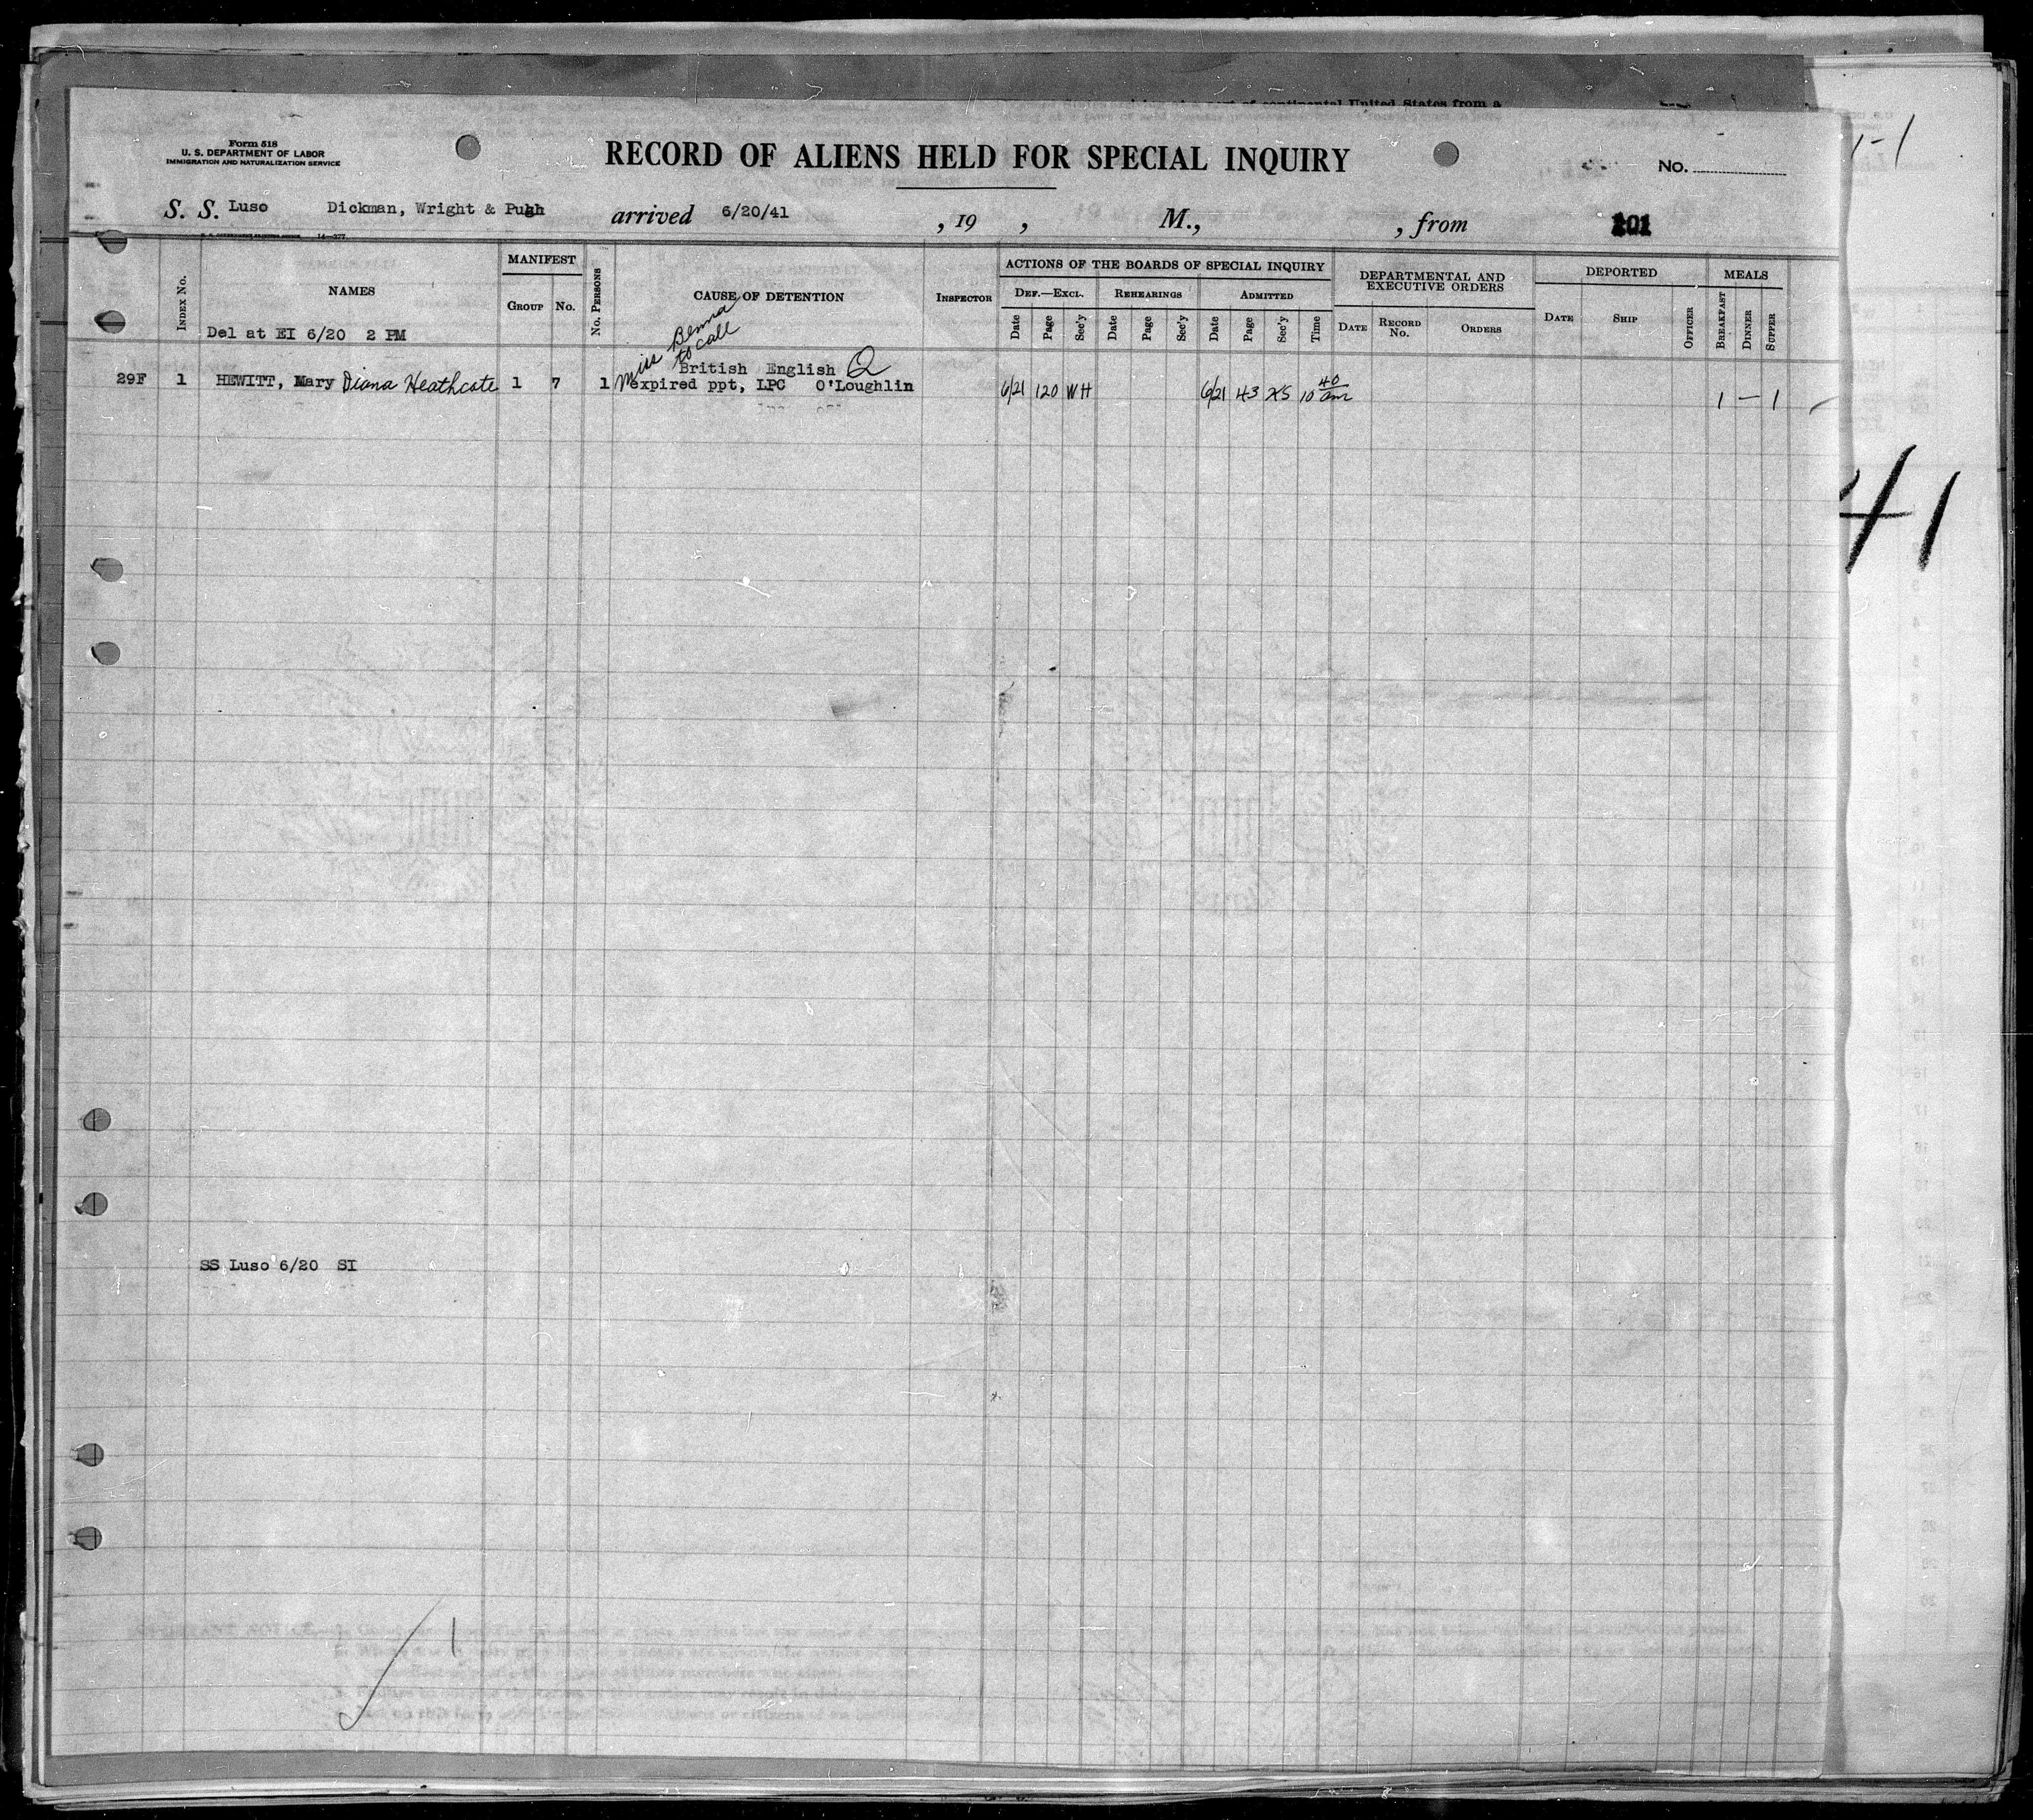 Form 518
U. S. DEPARTMENT OF LABOR
IMMIGRATION AND NATURALIZATION SERVICE
RECORD OF ALIENS HELD FOR SPECIAL INQUIRY
No.
S. S. Luso Dickman, Wright & Pugh arrived 6/20/41 , 19 , M., , from 101
MANIFEST
ACTIONS OF THE BOARDS OF SPECIAL INQUIRY
DEPARTMENTAL AND EXECUTIVE ORDERS
DEPORTED
MEALS
Index No.
NAMES
Group No.
No. Persons
CAUSE OF DETENTION
Inspector
Def.—Excl. Rehearings Admitted
Date Page Sec'y Date Page Sec'y Date Page Sec'y Time
Date Record No. Orders
Date Ship Officer
Breakfast Dinner Supper
Del at EI 6/20 2 PM
Miss Benna
to call
British English Q
29F 1 HEWITT, Mary Diana Heathcote 1 7 1 expired ppt, LPC O'Loughlin 6/21 120 WH 6/21 43 XS 10 40 am 1 — 1
41
SS Luso 6/20 SI
1